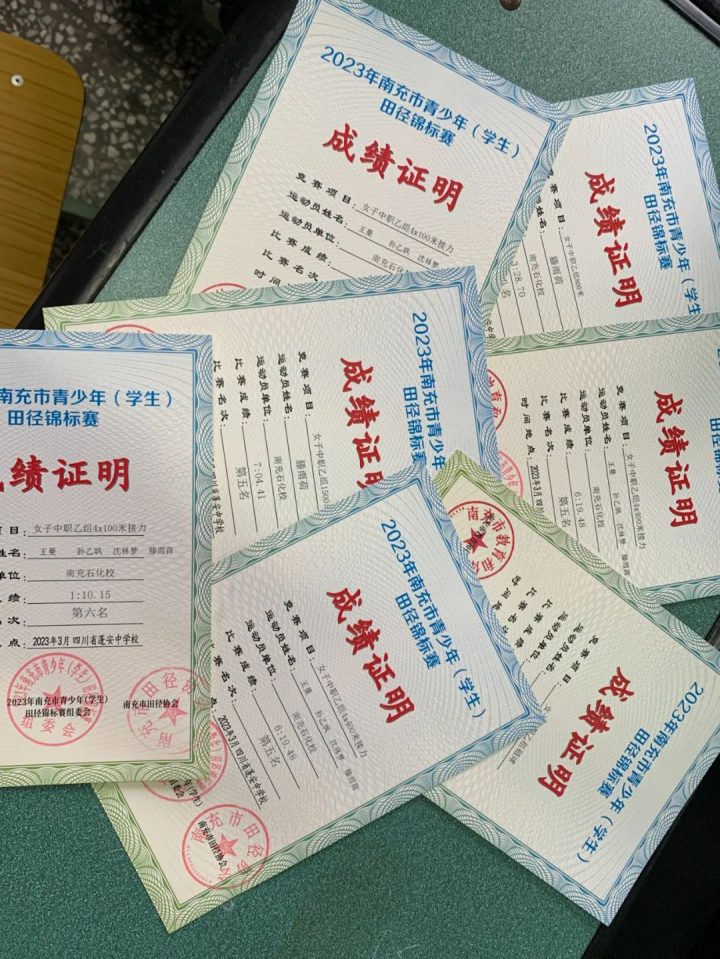 2023年南充市青少年（学生）
田径锦标赛
成绩证明
竞赛项目：女子中职乙组4x100米接力
运动员姓名：王曼 孙乙飒 沈林梦
运动员单位：南充石化
比赛成绩：
比赛名次：
时间
2023年南充市青少年（学生
田径锦标赛
成绩证明
项目：女子中职乙组800米
姓名：滕雨荷
南充石化校
:28.70
名
2023年南充市青少年
田径锦标赛
成绩证明
竞赛项目：女子中职乙组1500
运动员姓名：滕雨荷
运动员单位：南充石化校
比赛成绩：7:04.41
比赛名次：第五名
四川省蓬安中学校
成绩证明
竞赛项目：女子中职乙组4x400米接力
运动员姓名：王曼 孙乙飒 沈林梦 滕雨荷
运动员单位：南充石化校
比赛成绩：6:19.48
比赛名次：第五名
时间地点：2023年3月四
南充市青少年（学生）
田径锦标赛
绩证明
项目：女子中职乙组4x100米接力
姓名：王曼 孙乙飒 沈林梦 滕雨荷
单位：南充石化校
绩：1:10.15
名次：第六名
点：2023年3月 四川省蓬安中学校
2023年南充市青少年（学生）
田径锦标赛组委会
南充市田径协会
2023年南充市青少年（学生）
田径锦标赛
成绩证明
竞赛项目：女子中职乙组4x400米接力
运动员姓名：王曼 孙乙飒 沈林梦 滕雨荷
运动员单位：南充石化校
比赛成绩：6:19.48
比赛名次：第五名
2023年3月 四川省蓬安中学校
（学生）
南充市田径协会
南充市田径
2023年南充市青少年（学生）
田径锦标赛
成绩证明
市教育和